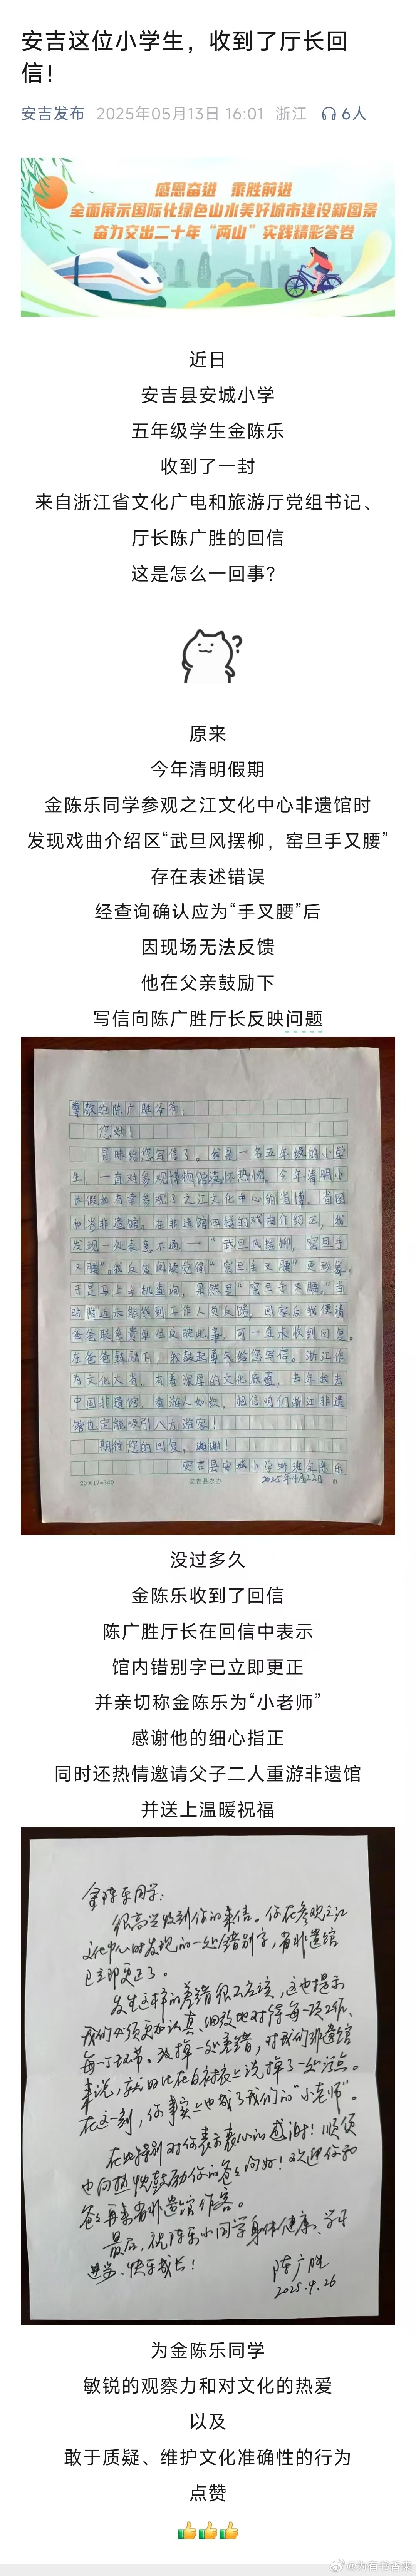 安吉这位小学生，收到了厅长回
信！
安吉发布 2025年05月13日 16:01 浙江 6人
感恩奋进 乘胜前进
全面展示国际化绿色山水美好城市建设新图景
奋力交出二十年“两山”实践精彩答卷
近日
安吉县安城小学
五年级学生金陈乐
收到了一封
来自浙江省文化广电和旅游厅党组书记、
厅长陈广胜的回信
这是怎么一回事？
?
原来
今年清明假期
金陈乐同学参观之江文化中心非遗馆时
发现戏曲介绍区“武旦风摆柳，窑旦手又腰”
存在表述错误
经查询确认应为“手叉腰”后
因现场无法反馈
他在父亲鼓励下
写信向陈广胜厅长反映问题
尊敬的陈广胜爷爷：
您好！
冒昧给您写信了。我是一名五年级的小学
生，一直对参观博物馆满怀热情。今年清明小
长假我有幸参观了之江文化中心的省博、省图
和省非遗馆。在非遗馆四楼的戏曲介绍区，我
发现一处表意不通——“武旦风摆柳，窑旦手
又腰”。我反复阅读觉得“窑旦手叉腰”更形象。
于是马上手机查询，果然是“窑旦手叉腰”。当
时附近未能找到工作人员反馈，回家后我便请
爸爸联系贵单位反映此事，可一直未收到回复。
在爸爸鼓励下，我鼓起勇气给您写信。浙江作
为文化大省，有着深厚的文化底蕴，去年我去
中国非遗馆，看游人如织，相信咱们浙江非遗
馆也定能吸引八方游客！
期待您的回复，谢谢！
安吉县安城小学 金陈乐
2025年4月22日
20×17=340 安吉县教办
没过多久
金陈乐收到了回信
陈广胜厅长在回信中表示
馆内错别字已立即更正
并亲切称金陈乐为“小老师”
感谢他的细心指正
同时还热情邀请父子二人重游非遗馆
并送上温暖祝福
金陈乐同学：
很高兴收到你的来信。你在参观之江
文化中心时发现的一处错别字，省非遗馆
已立即更正了。
发生这样的差错很不应该，这也提示
我们必须更加认真、细致地对待每一项工作、
每一个环节。改掉一处差错，对我们非遗馆
来说，就好比在白衬衣上洗掉了一处污点。
在这一刻，你事实上也成了我们的“小老师”。
在此特别对你表示衷心的感谢！顺便
也向热忱鼓励你的爸爸问好！欢迎你和
爸爸再来省非遗馆作客。
最后，祝陈乐小同学身体健康、学习
进步、快乐成长！
陈广胜
2025.4.26
为金陈乐同学
敏锐的观察力和对文化的热爱
以及
敢于质疑、维护文化准确性的行为
点赞
@为有书香来